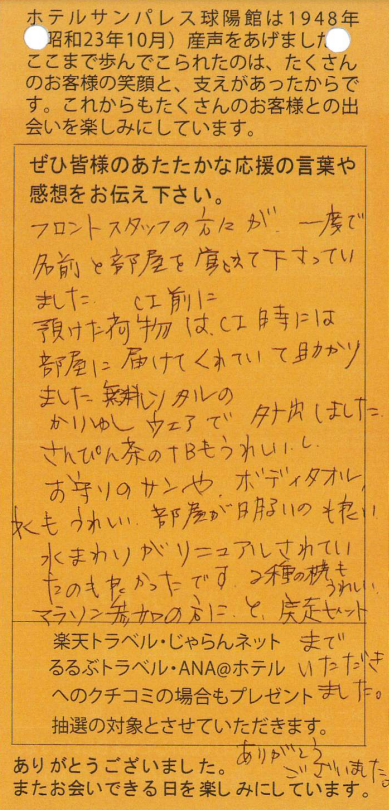 ホテルサンパレス球陽館は1948年
昭和23年10月）産声をあげまし
ここまで歩んでこられたのは、たくさん
のお客様の笑顔と、支えがあったからで
す。これからもたくさんのお客様との出
会いを楽しみにしています。
ぜひ皆様のあたたかな応援の言葉や
感想をお伝え下さい。
フロントスタッフの方にが、一度で
名前と部屋を覚えて下すってい
ました。 CI前に
預けた荷物は、CI時には
部屋に届けてくれていて助かり
ました 無料レンタルの
かりゆしウェアで 外出しました。
さんぴん茶のTBもうれしいし
お守りのサンや、ボディタオル、
水もうれしい。部屋が明るいのも良い
水まわりがリニュアルされてい
たのも良かったです。2種の枕も
うれしい
マラソン参加の方に、と、完走セット
楽天トラベル・じゃらんネット まで
るるぶトラベル・ANA@ホテル いただき
へのクチコミの場合もプレゼント ました。
抽選の対象とさせていただきます。
ありがとう
ございました。
ありがとうございました。
またお会いできる日を楽しみにしています。